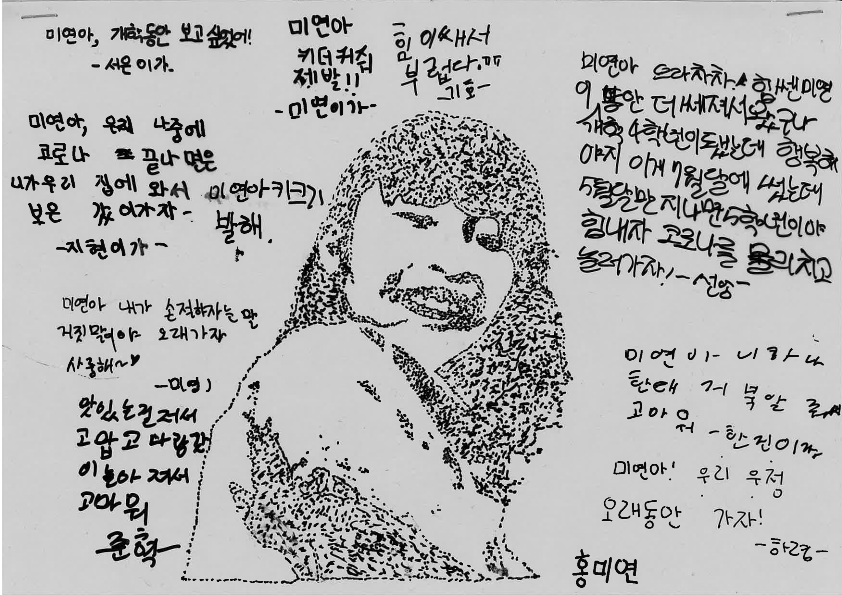 미연아, 개학동안 보고싶었어!
- 서은이가.
미연아
키더커줘
제발!!
- 미연이가 -
힘이쌔서
부럽다.ㅠㅠ
기호 -
미연아 으라차차 힘쎈미연
이 동안 더쎄져서왔구나
개학 4학년이 됬는데 행복해
야지 이게 7월달에 썼는데
5월달만 지나면 5학년이야
힘내자 코로나를 물리치고
놀러가자!
미연아, 우리 나중에
코로나 끝나면은
니가우리 집에 와서
-지현이가-
미연아키크기
발해.
미연아 내가 손적하자는말
거짓막이야 오래가자
사랑해~♡
맛있는걸져서
고맙고 다람같
이 놀아 져서
고마워
-준혁-
미연
고마워
미연아! 우리 우정
오래동안 가자!
홍미연